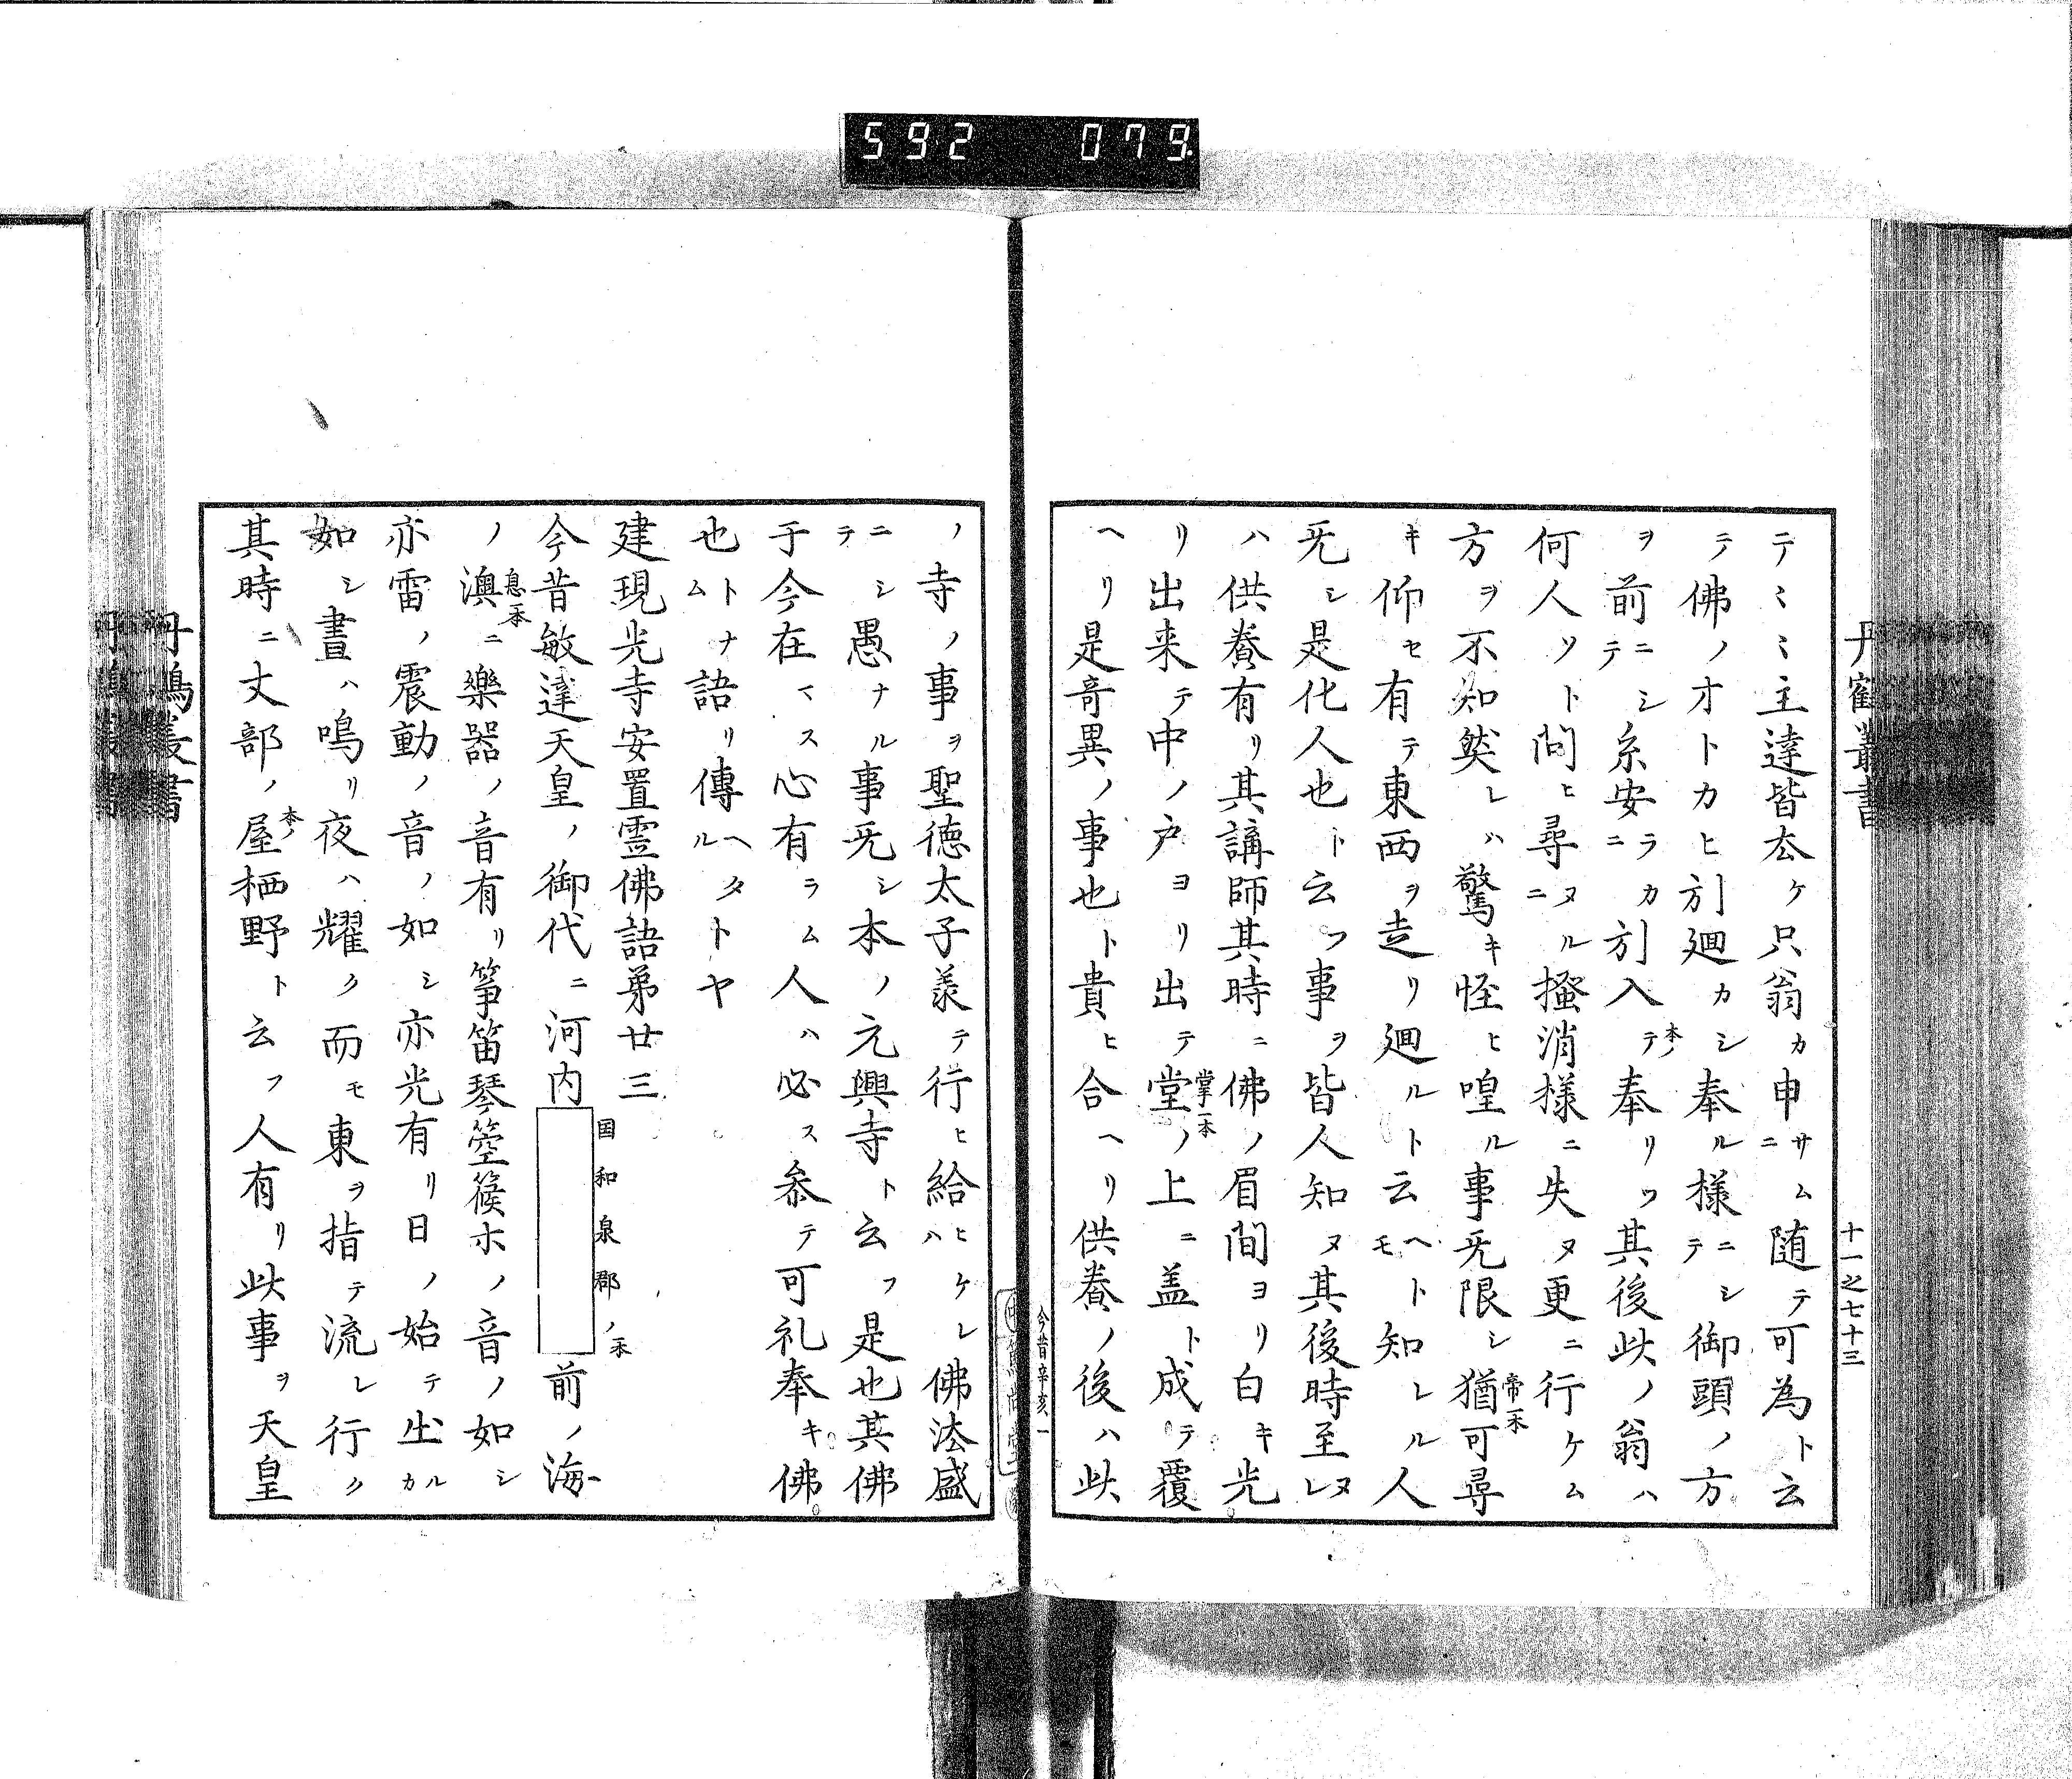 592 079
丹鶴叢書
十一之七十三
テミミ主達皆太ケ只翁カ申サムニ随テ可為ト云
テ佛ノオトカヒ引廻カシ奉ル様ニシテ御頭ノ方
ヲ前ニシテ糸安ラカニ引入テ本ノ奉リツ其後此ノ翁ハ
何人ソト問ヒ尋ヌルニ掻消様ニ失ヌ更ニ行ケム
方ヲ不知然レハ驚キ怪ヒ喤ル事无限シ猶帝一本可尋
キ仰セ有テ東西ヲ走リ廻ルト云ヘトモ知レル人
无シ是化人也ト云フ事ヲ皆人知ヌ其後時至ヌレ
ハ供養有リ其講師其時ニ佛ノ眉間ヨリ白キ光
リ出来テ中ノ戸ヨリ出テ堂掌一本ノ上ニ盖ト成テ覆
ヘリ是奇異ノ事也ト貴ヒ合ヘリ供養ノ後ハ此
今昔辛亥一
ノ寺ノ事ヲ聖徳太子羕テ行ヒ給ヒケレハ佛法盛
ニシテ愚ナル事无シ本ノ元興寺ト云フ是也其佛
于今在マス心有ラム人ハ必ス叅テ可礼奉キ佛
也トナム語リ傳ヘタルトヤ
建現光寺安置霊佛語苐廿三
今昔敏達天皇ノ御代ニ河内国和泉郡ノ一本前ノ海
ノ澳息一本ニ樂器ノ音有リ筝笛琴箜篌ホノ音ノ如シ
亦雷ノ震動ノ音ノ如シ亦光有リ日ノ始テ出ルカ
如シ晝ハ鳴リ夜ハ耀ク而モ東ヲ指テ流レ行ク
其時ニ丈部ノ本ノ屋栖野ト云フ人有リ此事ヲ天皇